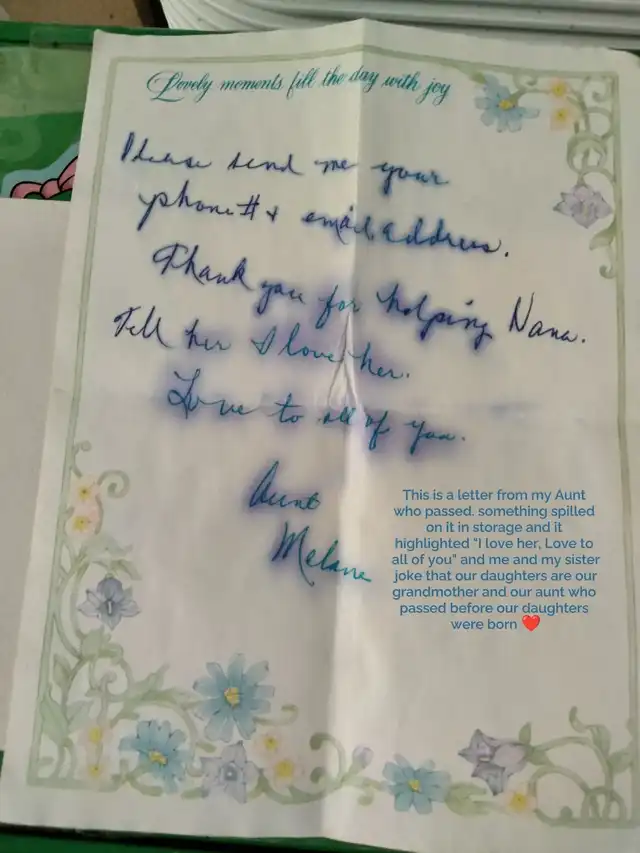 Lovely moments fill the day with joy
Please send me your
phone # & email address.
Thank you for helping Nana.
Tell her I love her.
Love to all of you.
Aunt
Melanie
This is a letter from my Aunt
who passed. something spilled
on it in storage and it
highlighted "I love her, Love to
all of you" and me and my sister
joke that our daughters are our
grandmother and our aunt who
passed before our daughters
were born ❤️